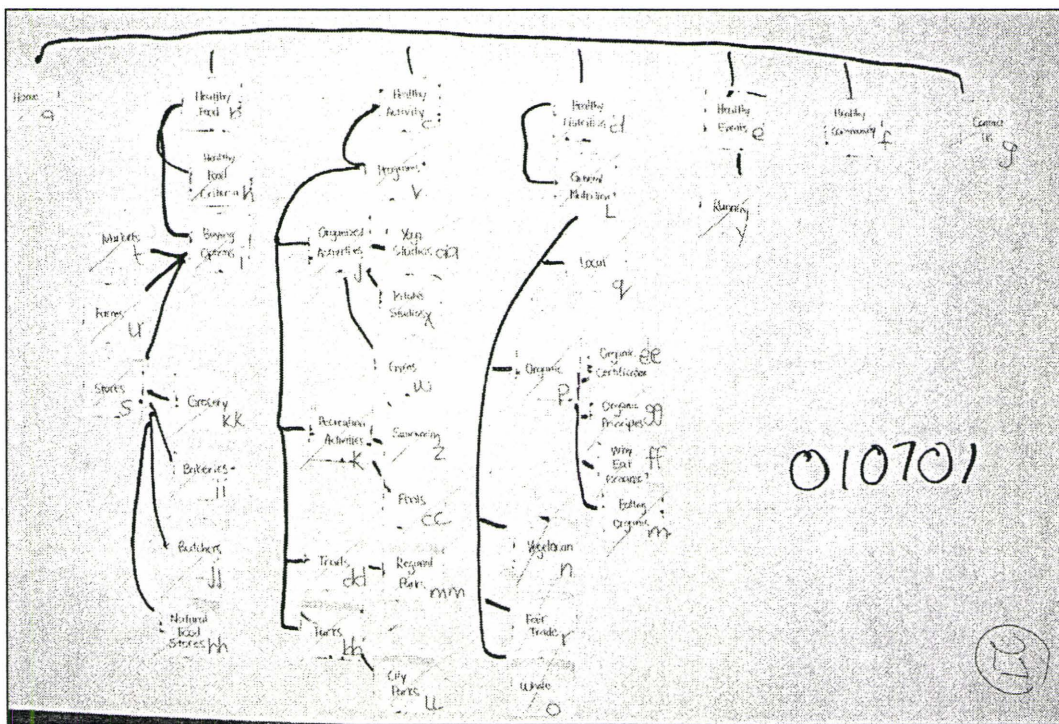 Home
a
Healthy
Food b
Healthy
Food
Criteria h
Buying
Options i
Markets
t
Farms
u
Stores
s
Grocery
kk
Bakeries
ii
Butchers
jj
Natural
Food
Stores hh
Healthy
Activity c
Programs
v
Organized
Activities
j
Yoga
Studios aa
Pilates
Studios x
Gyms
w
Recreation
Activities
k
Swimming
z
Pools
cc
Trails
dd
Regional
Parks mm
Parks
bb
City
Parks
ll
Healthy
Nutrition d
General
Nutrition
L
Local
q
Organic
p
Organic ee
Certification
Organic
Principles gg
Why
Eat ff
Organic?
Eating
Organic m
Vegetarian
n
Fair
Trade r
Whole
o
Healthy
Events e
Running
y
Healthy
Community f
Contact
Us
g
010701